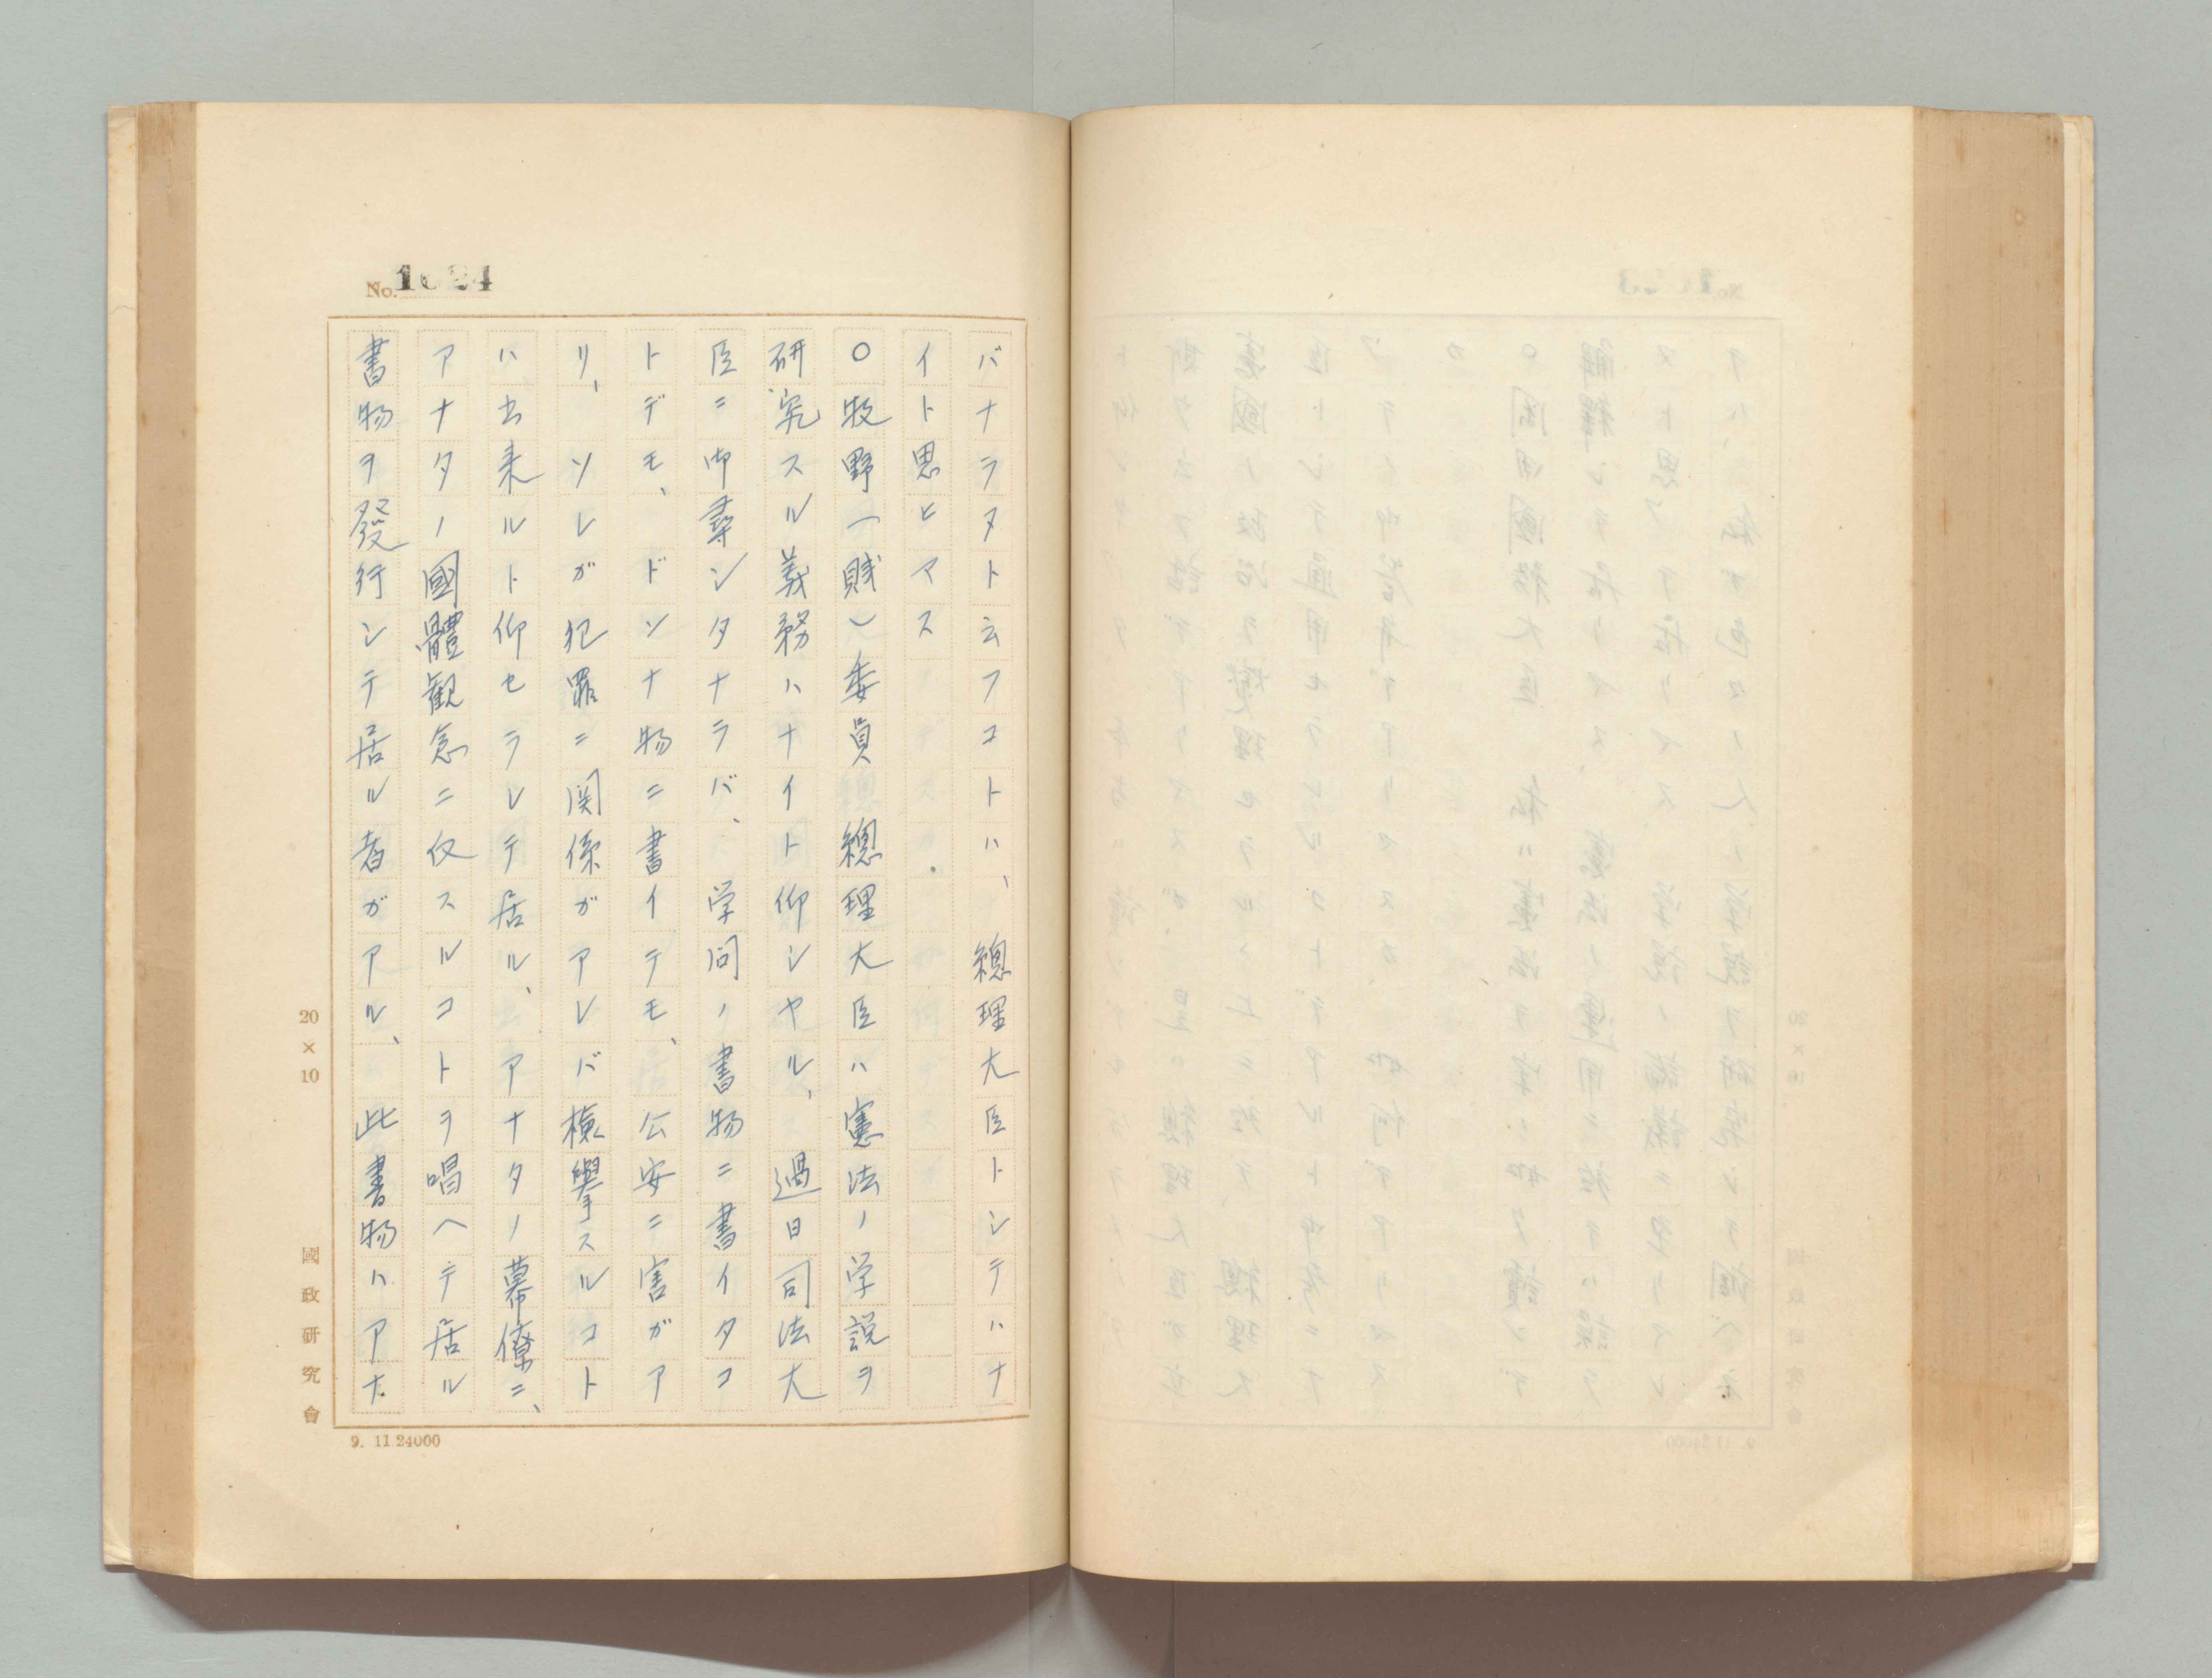 No. 1024
バナラヌト云フコトハ、總理大臣トシテハナ
イト思ヒマス
〇牧野(賤)委員 總理大臣ハ憲法ノ学説ヲ
研究スル義務ハナイト仰シヤル、過日司法大
臣ニ御尋シタナラバ、学問ノ書物ニ書イタコ
トデモ、ドンナ物ニ書イテモ、公安ニ害ガア
リ、ソレガ犯罪ニ関係ガアレバ検擧スルコト
ハ出来ルト仰セラレテ居ル、アナタノ幕僚ニ、
アナタノ國體観念ニ反スルコトヲ唱ヘテ居ル
書物ヲ發行シテ居ル者ガアル、此書物ハアナ
20×10
國政研究會
9. 11.24000